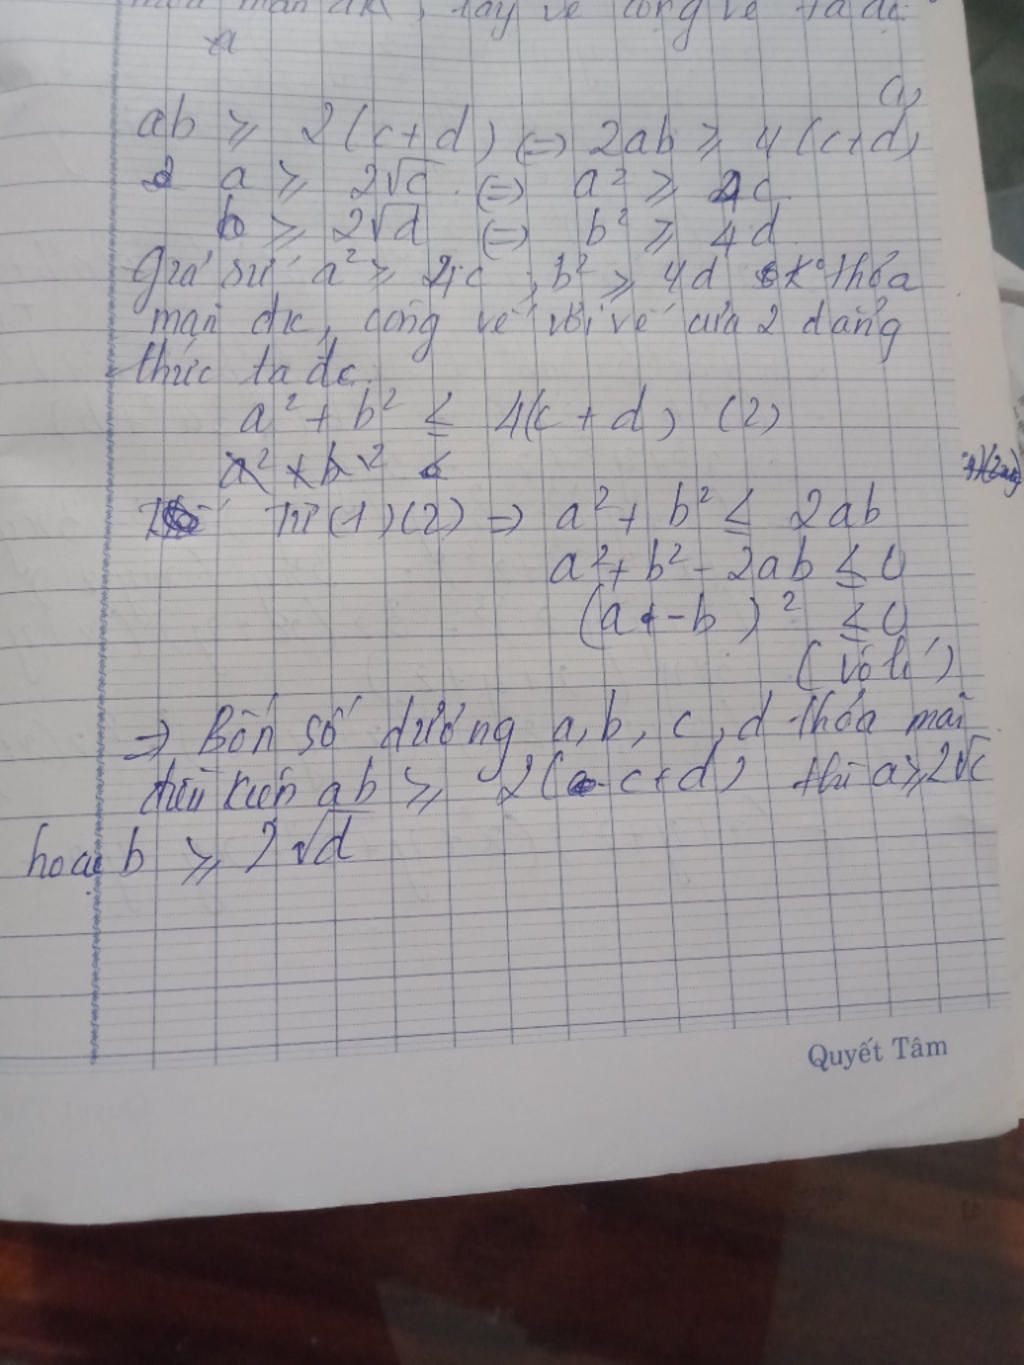 mãn đk, lấy vế cộng vế ta đc
(1)
ab ≥ 2(c+d) (=) 2ab ≥ 4(c+d)
a ≥ 2√c (=) a² ≥ 4c
b ≥ 2√d (=) b² ≥ 4d
Giả sử a² ≥ 4c, b² ≥ 4d k° thỏa
mạn đk, cộng vế với vế của 2 đẳng
thức ta đc
a² + b² ≤ 4(c + d) (2)
a² + b² ≤
Từ (1)(2) => a² + b² ≤ 2ab
a² + b² - 2ab ≤ 0
(a - b)² ≤ 0
(vô lí)
=> Bốn số dương a, b, c, d thỏa mãn
điều kiện ab ≥ 2(c+d) thì a ≥ 2√c
hoặc b ≥ 2√d
Quyết Tâm